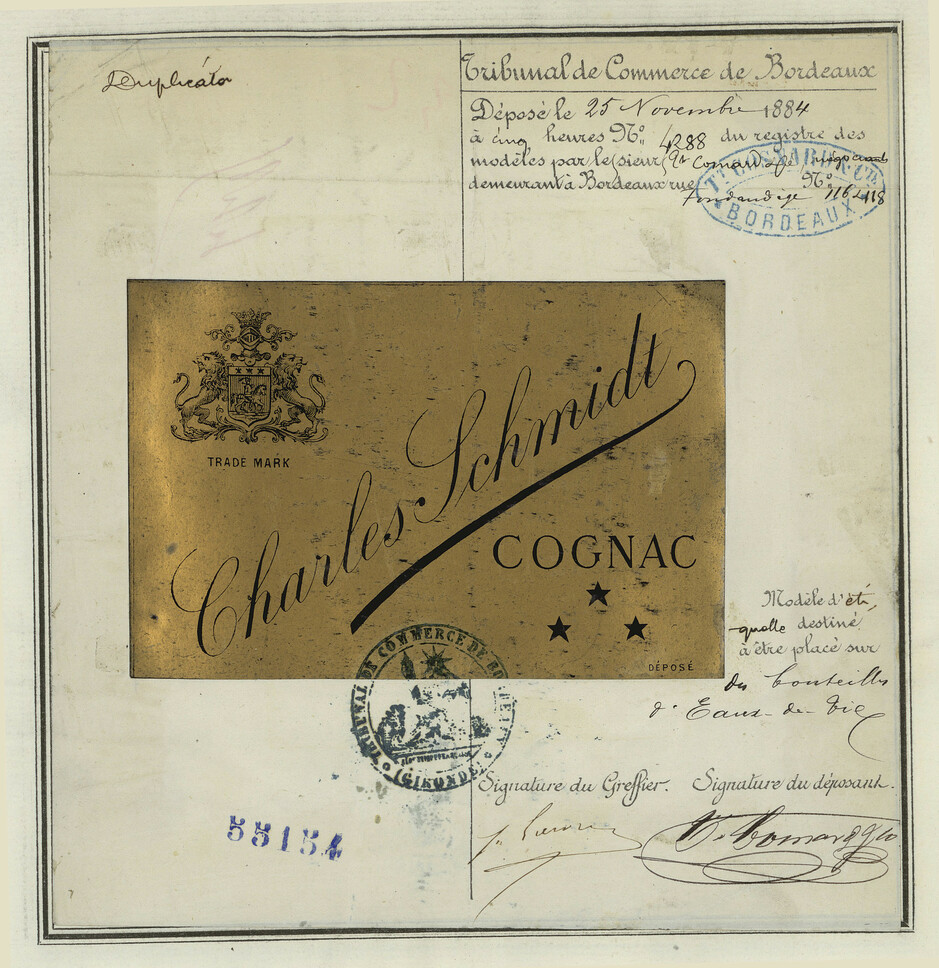 Duplicata
Tribunal de Commerce de Bordeaux
Déposé le 25 Novembre 1884
à cinq heures N° 4288 du registre des
modèles par le sieur
demeurant à Bordeaux rue
Fondaudège N° 116 118
& Cie
BORDEAUX
TRADE MARK
Charles Schmidt
COGNAC
DÉPOSÉ
Modèle d'éti,
quette destiné
à être placé sur
des bouteilles
d'Eaux-de-Vie
TRIBUNAL DE COMMERCE DE BORDEAUX
(GIRONDE)
Signature du Greffier. Signature du déposant.
55154